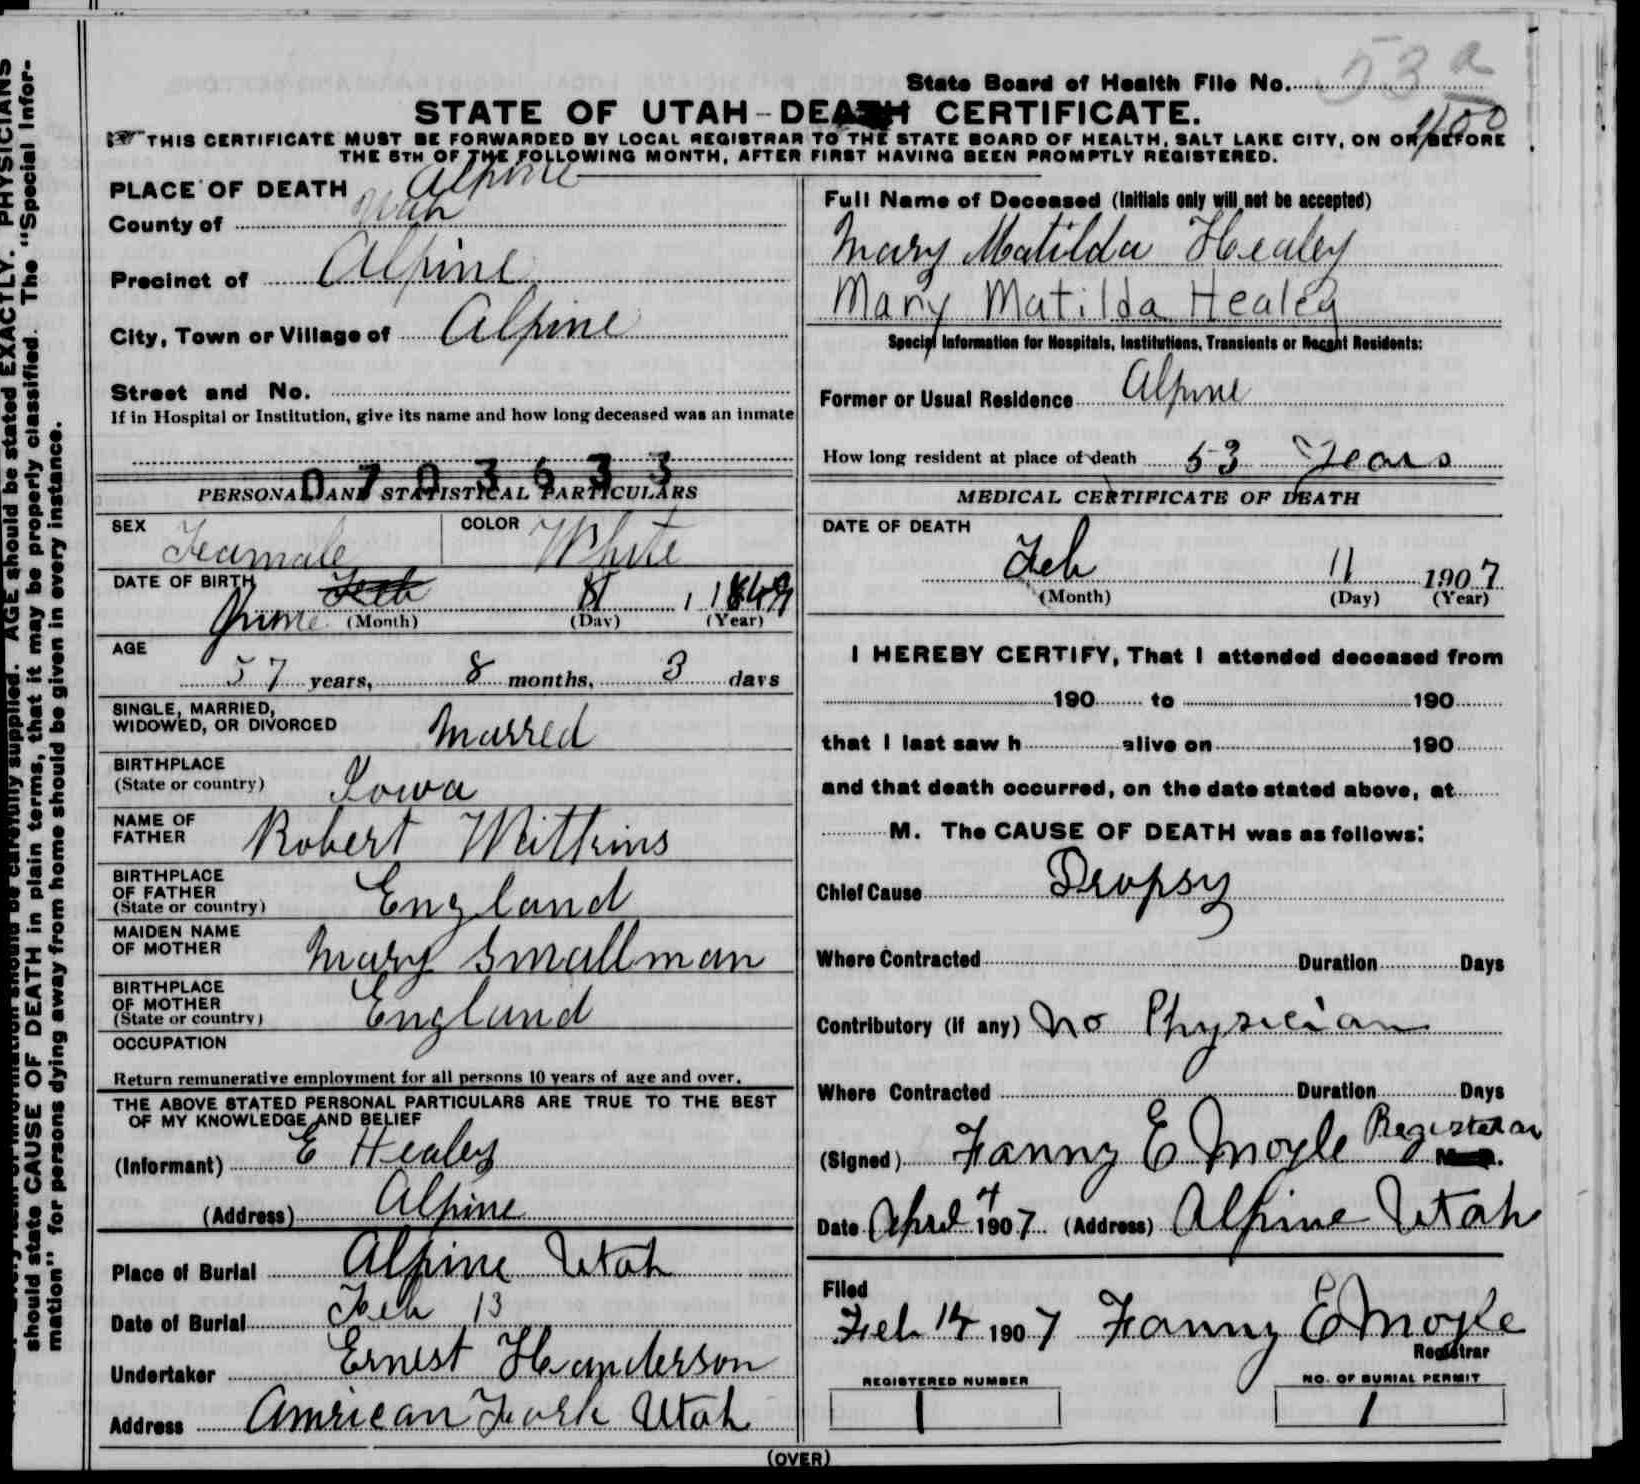 State Board of Health File No. 53 a
STATE OF UTAH - DEATH CERTIFICATE.
THIS CERTIFICATE MUST BE FORWARDED BY LOCAL REGISTRAR TO THE STATE BOARD OF HEALTH, SALT LAKE CITY, ON OR BEFORE
THE 5TH OF THE FOLLOWING MONTH, AFTER FIRST HAVING BEEN PROMPTLY REGISTERED.
PLACE OF DEATH Alpine
County of Utah
Precinct of Alpine
City, Town or Village of Alpine
Street and No.
If in Hospital or Institution, give its name and how long deceased was an inmate
0703633
PERSONAL AND STATISTICAL PARTICULARS
SEX Feamale COLOR White
DATE OF BIRTH Feb 8 1849
June (Month) (Day) (Year)
AGE
57 years, 8 months, 3 days
SINGLE, MARRIED,
WIDOWED, OR DIVORCED Marred
BIRTHPLACE
(State or country) Iowa
NAME OF
FATHER Robert Wattkins
BIRTHPLACE
OF FATHER
(State or country) England
MAIDEN NAME
OF MOTHER Mary Smallman
BIRTHPLACE
OF MOTHER
(State or country) England
OCCUPATION
Return remunerative employment for all persons 10 years of age and over.
THE ABOVE STATED PERSONAL PARTICULARS ARE TRUE TO THE BEST
OF MY KNOWLEDGE AND BELIEF
(Informant) E Healey
(Address) Alpine
Place of Burial Alpine Utah
Date of Burial Feb 13
Undertaker Ernest Handerson
Address Amrican Fork Utah
Full Name of Deceased (Initials only will not be accepted)
Mary Matilda Healey
Mary Matilda Healey
Special Information for Hospitals, Institutions, Transients or Recent Residents:
Former or Usual Residence Alpine
How long resident at place of death 53 Years
MEDICAL CERTIFICATE OF DEATH
DATE OF DEATH
Feb 11 1907
(Month) (Day) (Year)
I HEREBY CERTIFY, That I attended deceased from
190 to 190
that I last saw h alive on 190
and that death occurred, on the date stated above, at
M. The CAUSE OF DEATH was as follows:
Chief Cause Dropsy
Where Contracted Duration Days
Contributory (if any) No Physician
Where Contracted Duration Days
(Signed) Fanny E Moyle Registerar
Date April 4 1907 (Address) Alpine Utah
Filed
Feb 14 1907 Fanny E Moyle
Registrar
REGISTERED NUMBER NO. OF BURIAL PERMIT
1 1
(OVER)
should state CAUSE OF DEATH in plain terms, that it may be properly classified. The "Special Infor-
mation" for persons dying away from home should be given in every instance.